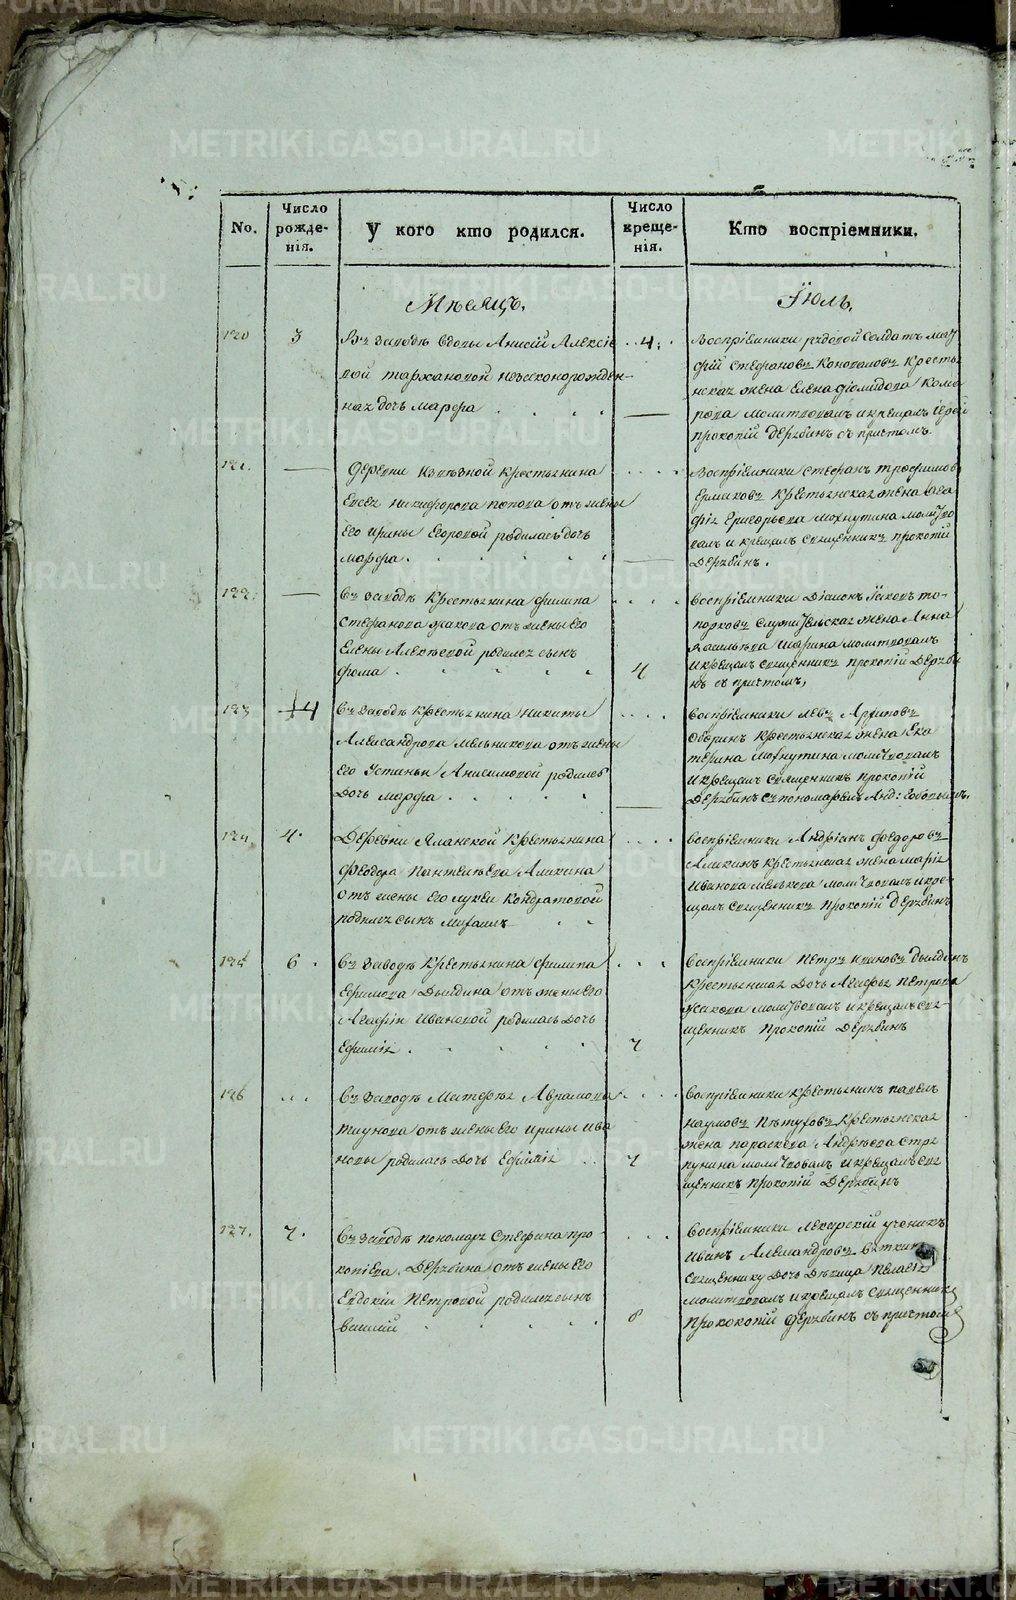 No.
Число рожде-нія.
У кого кто родился.
Число креще-нія.
Кто воспріемники.
Мѣсяцъ.
Іюль.
120
3
Въ заводѣ вдовы Анисіи Алексіе
вой
незаконорожден-
ная дочь марѳа
4
Воспріемники рядовой солдатъ
Стефановъ Коноваловъ кресть
нская жена Елена
молитвовалъ и крещалъ іерей
прокопій Дерябинъ съ причтомъ.
121.
Деревни крестьянина
никифорова попова отъ жены
его ирины Егоровой родилась дочь
марѳа
Воспріемники Стефанъ трофимовъ
Ермаковъ крестьянская жена
Григорьева Махнутина молитво
валъ и крещалъ священникъ прокопій
Дерябинъ.
122.
Въ заводѣ крестьянина филипа
Стефанова отъ жены его
Елены Алексѣевой родился сынъ
фома
4
Воспріемники Діаконъ Іаковъ то-
порковъ служительская жена Анна
Васильева молитвовалъ
и крещалъ священникъ прокопій Деряби
нъ съ причтомъ,
123
4
Въ заводѣ крестьянина никиты
Александрова мельникова отъ жены
его Устиньи Анисимовой родилась
дочь марѳа
Воспріемники левъ Архиповъ
крестьянская жена Ека
терина Махнутина молитвовалъ
и крещалъ священникъ прокопій
Дерябинъ съ пономаремъ
124
4.
Деревни крестьянина
Феодора Пантелѣева Аликина
отъ жены его лукеи Кондратовой
родился сынъ михаилъ
Воспріемники Андріанъ Федоровъ
Аликинъ крестьянская жена маріа
Иванова молитвовалъ и кре-
щалъ священникъ прокопій Дерябинъ
125
6
Въ заводѣ крестьянина филипа
Ефимова Дылдина отъ жены его
Агафіи Ивановой родилась дочь
Ефиміа
7
Воспріемники петръ ивановъ дылдинъ
крестьянская дочь Агафья петрова
молитвовалъ и крещалъ свя-
щенникъ прокопій Дерябинъ
126
Въ заводѣ Аврамова
тиунова отъ жены его ирины ива
новы родилась дочь Ефиміа
7
Воспріемники крестьянинъ павелъ
наумовъ пѣтуховъ крестьянская
жена параскева Андрѣева стря
пунина молитвовалъ и крещалъ свя
щенникъ прокопій Дерябинъ
127.
7.
Въ заводѣ пономаря Стефана про-
копіева Дерябина отъ жены его
Евдокіи Петровой родился сынъ
василій
8
Воспріемники лекарскій ученикъ
иванъ Александровъ вяткинъ
священнику дочь дѣвица пелагія
молитвовалъ и крещалъ священникъ
Прокопій Дерябинъ съ причтомъ
METRIKI.GASO-URAL.RU